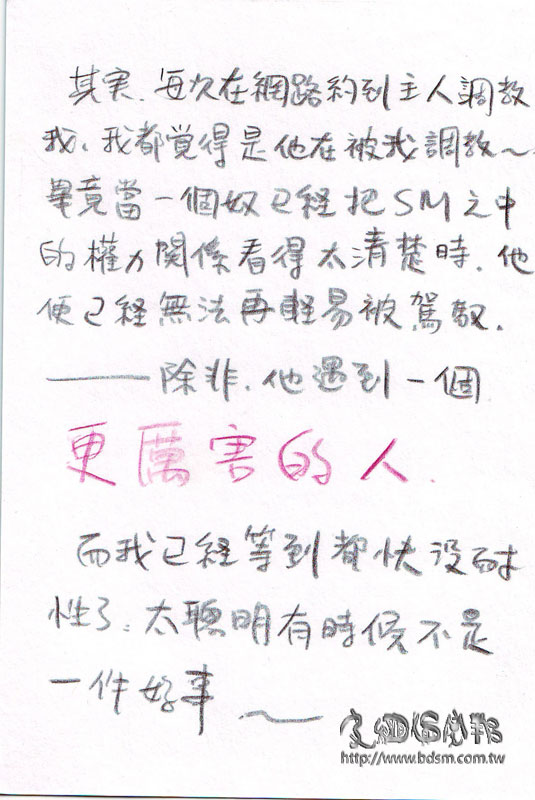 其实、每次在網路約到主人調教
我、我都覚得是他在被我調教～
畢竟當一個奴已経把SM之中
的權力關係看得太清楚時、他
便已経無法再軽易被駕馭.
——除非、他遇到一個
更厲害的人.
而我已経等到都快沒耐
性了：太聰明有時候不是
一件好事～
http://www.bdsm.com.tw